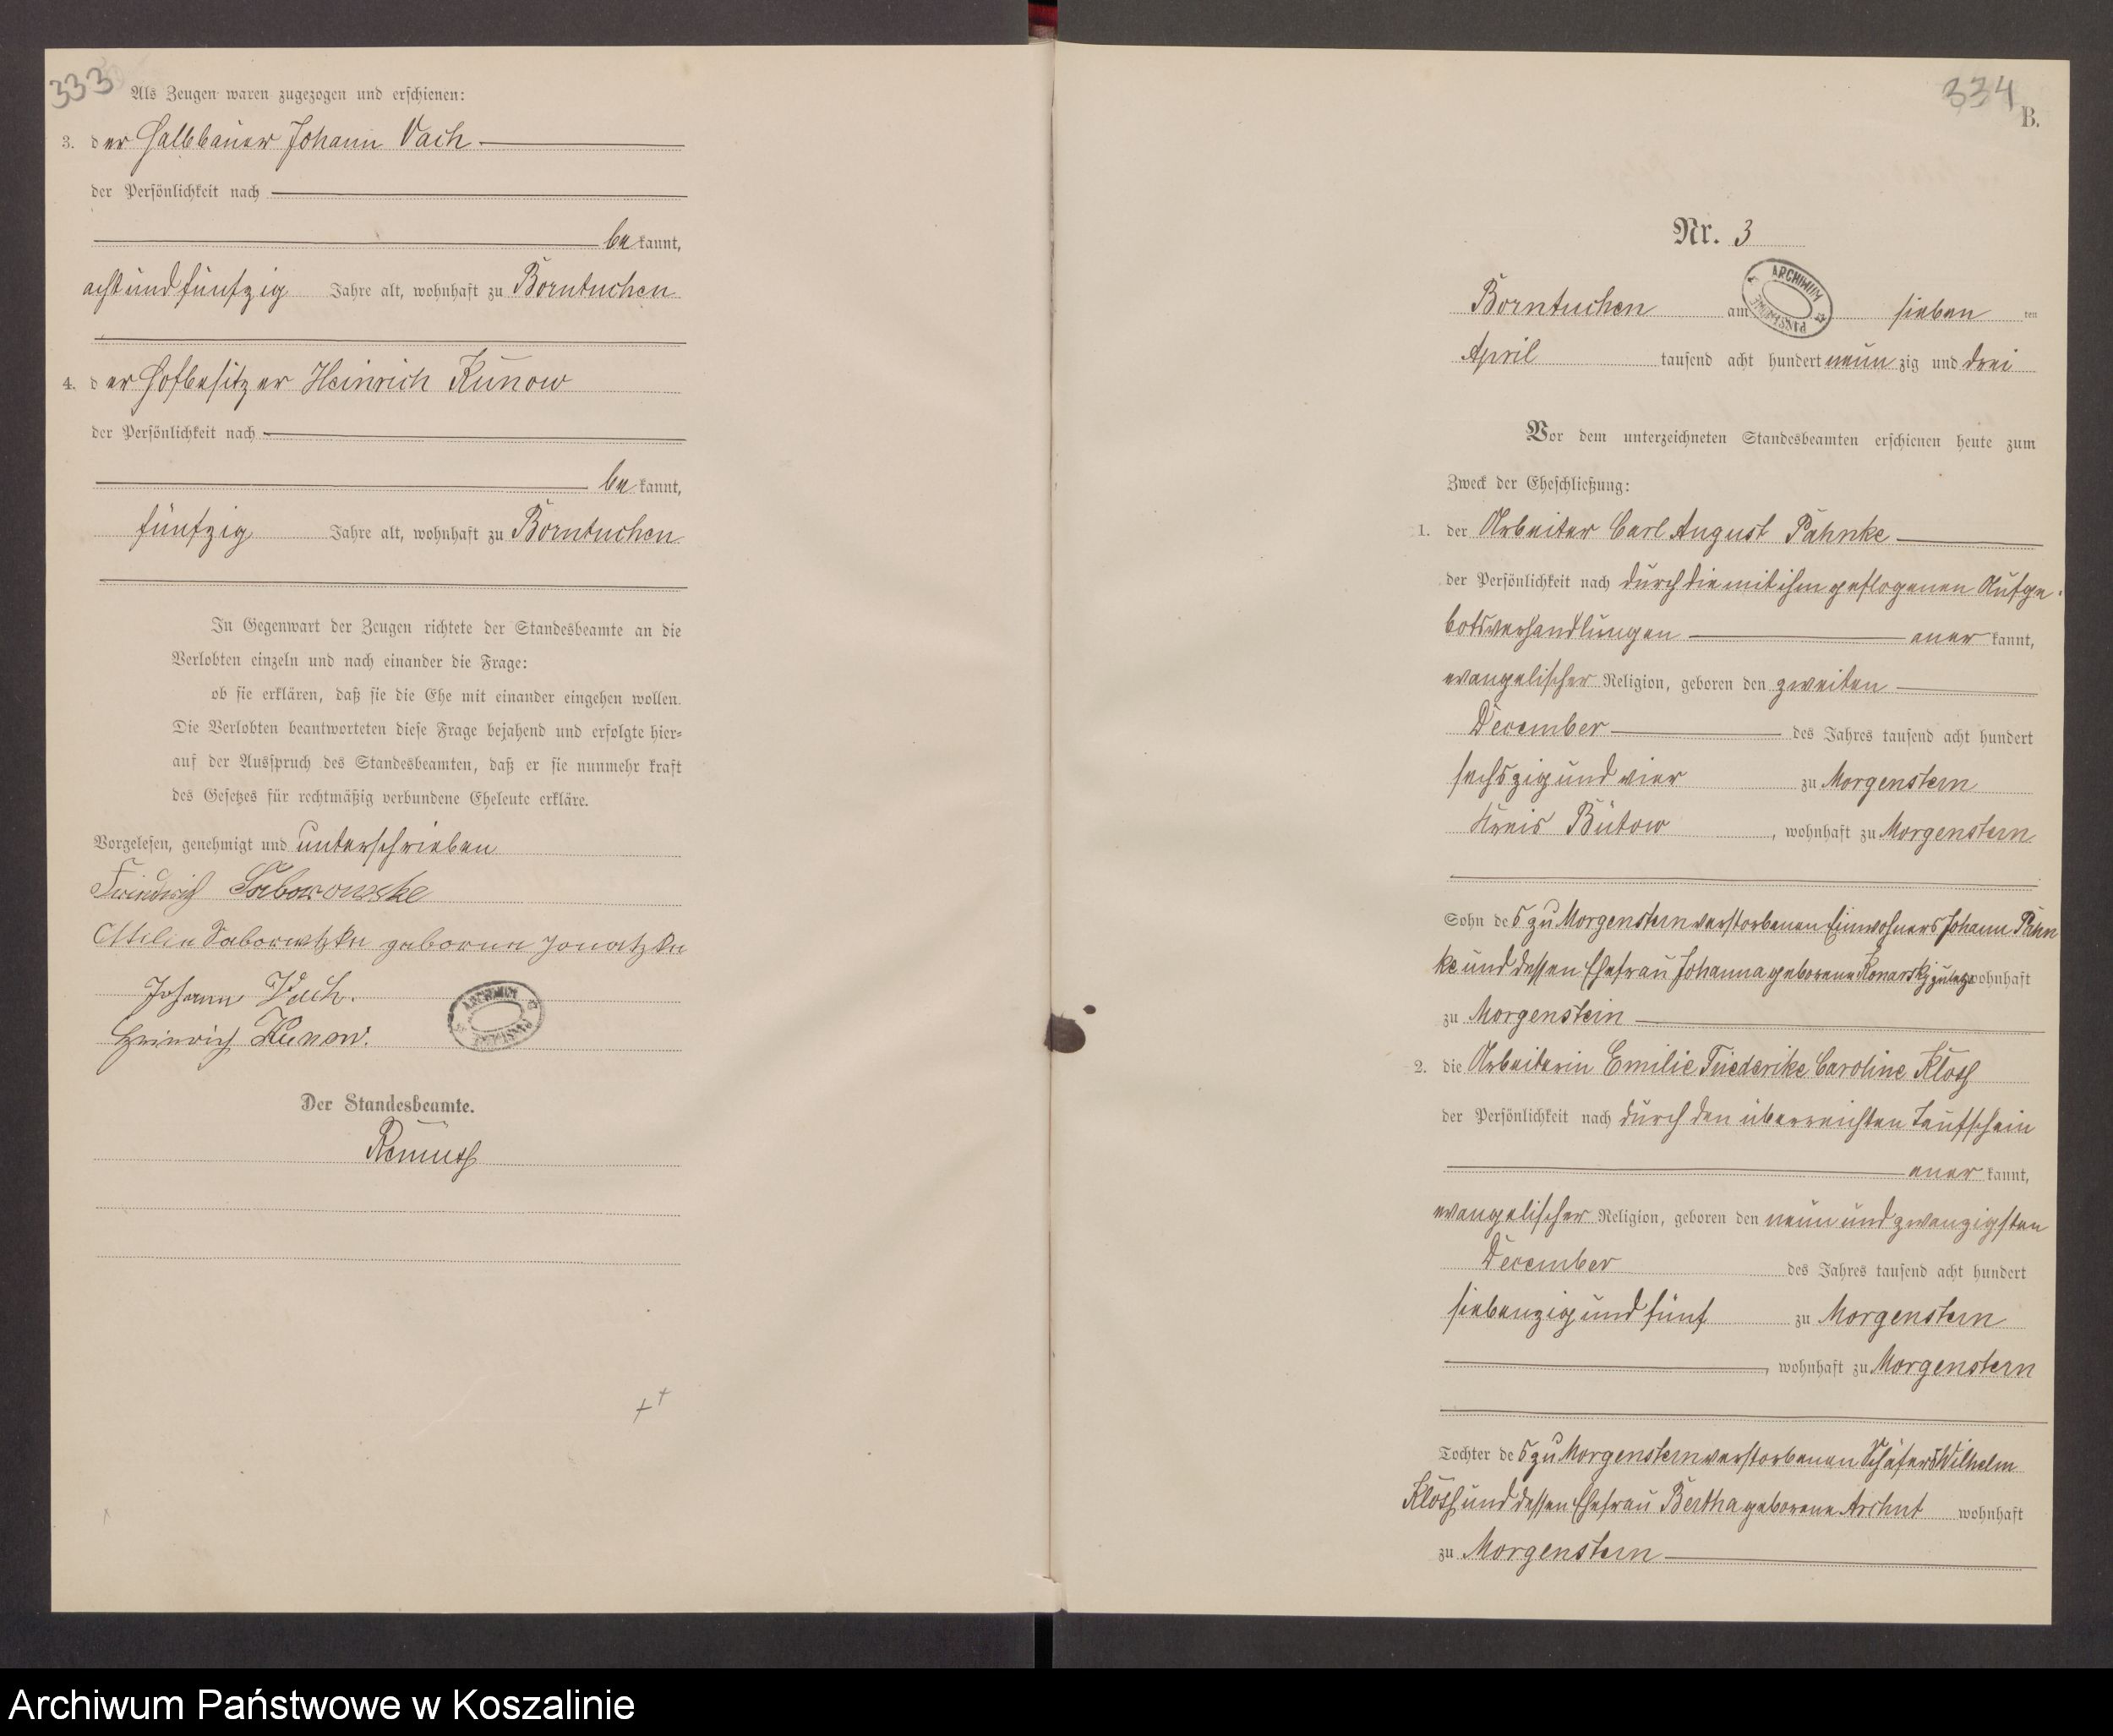 333
Als Zeugen waren zugezogen und erschienen:
3. der Halbbauer Johann Vach
der Persönlichkeit nach
bekannt,
acht und fünfzig Jahre alt, wohnhaft zu Borntuchen
4. der Hofbesitzer Heinrich Kunow
der Persönlichkeit nach
bekannt,
fünfzig Jahre alt, wohnhaft zu Borntuchen
In Gegenwart der Zeugen richtete der Standesbeamte an die
Verlobten einzeln und nach einander die Frage:
ob sie erklären, daß sie die Ehe mit einander eingehen wollen.
Die Verlobten beantworteten diese Frage bejahend und erfolgte hier-
auf der Ausspruch des Standesbeamten, daß er sie nunmehr kraft
des Gesetzes für rechtmäßig verbundene Eheleute erkläre.
Vorgelesen, genehmigt und unterschrieben
Friedrich
geborne
Johann Vach.
Heinrich Kunow.
ARCHIWUM
Der Standesbeamte.
334
B.
Nr. 3
ARCHIWUM PAŃSTWOWE
Borntuchen am sieben ten
April tausend acht hundert neun zig und drei
Vor dem unterzeichneten Standesbeamten erschienen heute zum
Zweck der Eheschließung:
1. der Arbeiter Carl August Pähnke
der Persönlichkeit nach durch die mit ihm gepflogenen Aufge-
botsverhandlungen anerkannt,
evangelischer Religion, geboren den zweiten
December des Jahres tausend acht hundert
sechszig und vier zu Morgenstern
Kreis Bütow, wohnhaft zu Morgenstern
Sohn des zu Morgenstern verstorbenen Einwohners Johann Pähn
ke und dessen Ehefrau Johanna geborene Konarski zuletzt wohnhaft
zu Morgenstern
2. die Arbeiterin Emilie Friederike Caroline
der Persönlichkeit nach durch den überreichten Taufschein
anerkannt,
evangelischer Religion, geboren den neun und zwanzigsten
December des Jahres tausend acht hundert
siebenzig und fünf zu Morgenstern
, wohnhaft zu Morgenstern
Tochter des zu Morgenstern verstorbenen Schäfers Wilhelm
und dessen Ehefrau Bertha geborene wohnhaft
zu Morgenstern
Archiwum Państwowe w Koszalinie